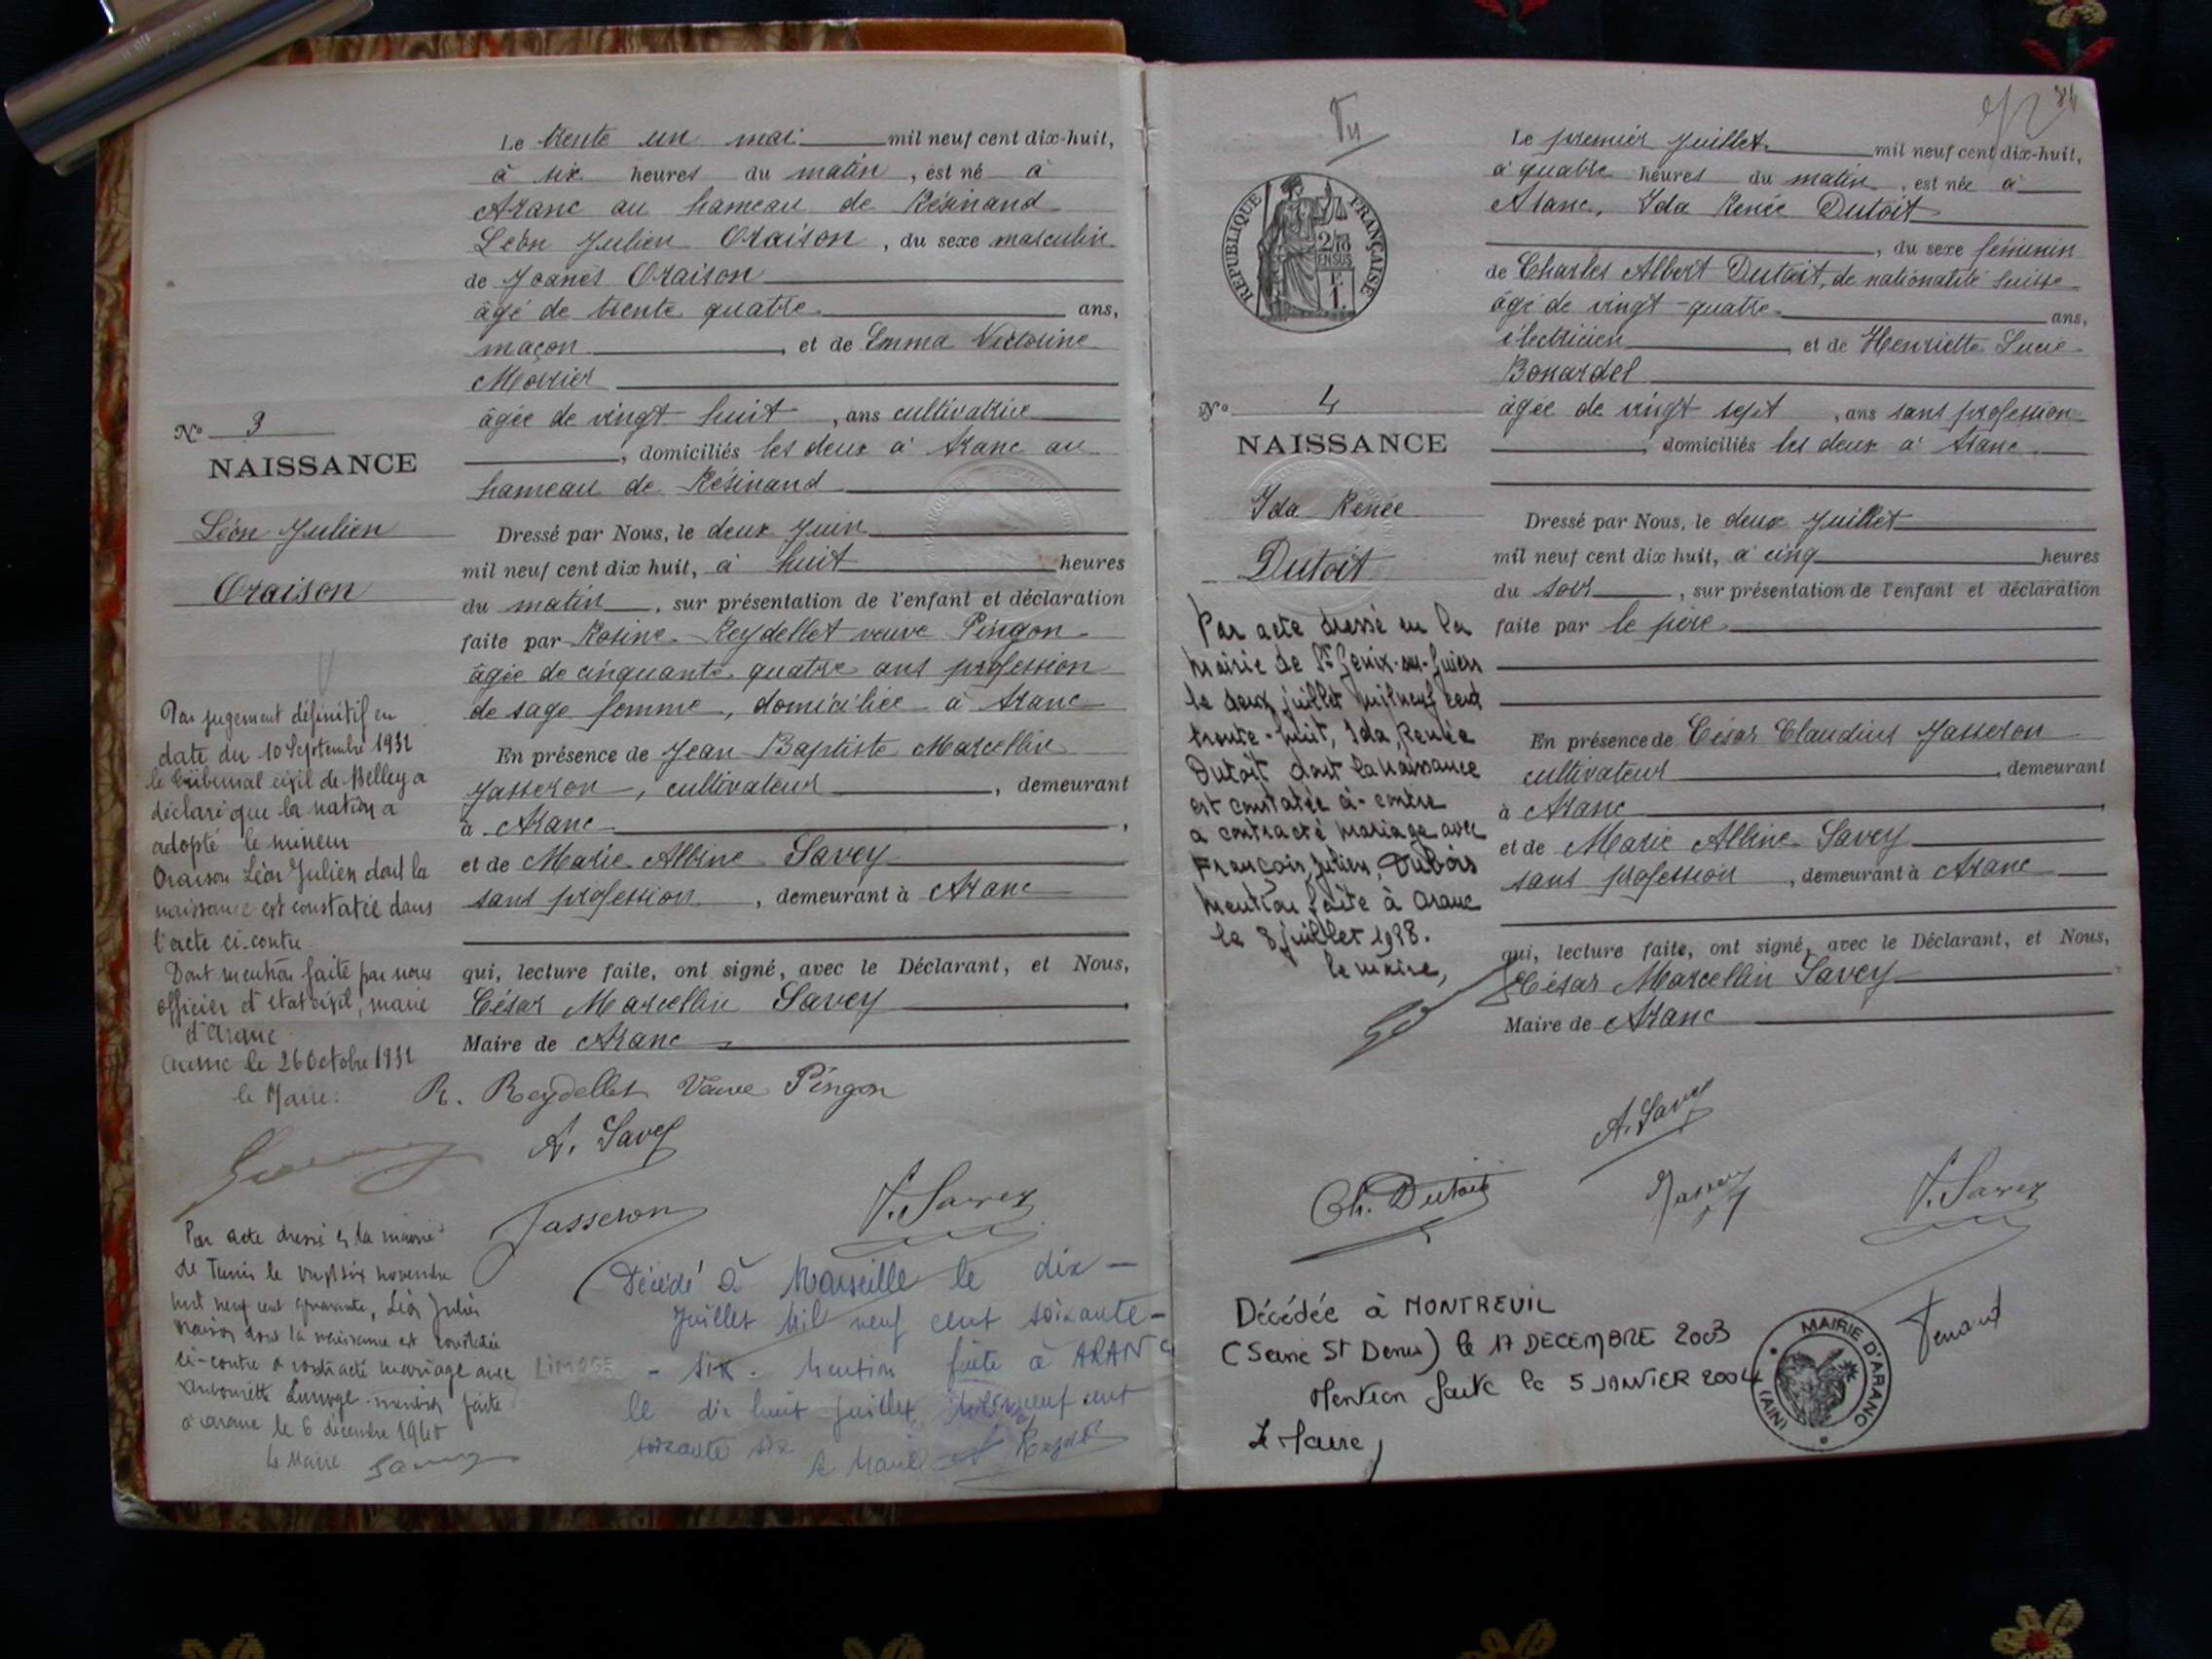 Le trente un mai mil neuf cent dix-huit,
à six heures du matin, est né à
Aranc au hameau de Résinand
Léon Julien Oraison, du sexe masculin
de Joanès Oraison
âgé de trente quatre ans,
maçon, et de Emma Victorine
Morrier
âgée de vingt huit, ans cultivatrice
, domiciliés les deux à Aranc au
hameau de Résinand
Dressé par Nous, le deux Juin
mil neuf cent dix huit, à huit heures
du matin, sur présentation de l'enfant et déclaration
faite par Rosine Reydellet veuve Pingon
âgée de cinquante quatre ans profession
de sage femme, domiciliée à Aranc
En présence de Jean Baptiste Marcellin
Jasseron, cultivateur, demeurant
à Aranc,
et de Marie Albine Savey
sans profession, demeurant à Aranc
qui, lecture faite, ont signé, avec le Déclarant, et Nous,
César Marcellin Savey
Maire de Aranc
R. Reydellet Veuve Pingon
A. Savey
Jasseron
Décédé à Marseille le dix-
Juillet mil neuf cent soixante-
-six. Mention faite à ARANC
le dix huit juillet mil neuf cent
soixante six
le Maire
No 3
NAISSANCE
Léon Julien
Oraison
Par jugement définitif en
date du 10 Septembre 1931
le tribunal civil de Belley a
déclaré que la nation a
adopté le mineur
Oraison Léon Julien dont la
naissance est constatée dans
l'acte ci-contre.
Dont mention faite par nous
officier d'état civil, maire
d'Aranc
Aranc le 26 Octobre 1931
le Maire:
Par acte dressé à la mairie
de Tunis le vingt six novembre
mil neuf cent quarante, Léon Julien
Oraison dont la naissance est constatée
ci-contre a contracté mariage avec
Antoinette mention faite
à Aranc le 6 décembre 1940
le Maire
LIMOGE
Le premier Juillet mil neuf cent dix-huit,
à quatre heures du matin, est née à
Aranc, Ida Renée Dutoit
, du sexe féminin
de Charles Albert Dutoit, de nationalité suisse
âgé de vingt-quatre ans,
électricien, et de Henriette Lucie
Bonardel
âgée de vingt sept, ans sans profession
, domiciliés les deux à Aranc
Dressé par Nous, le deux Juillet
mil neuf cent dix huit, à cinq heures
du soir, sur présentation de l'enfant et déclaration
faite par le père
En présence de César Claudius Jasseron
cultivateur, demeurant
à Aranc,
et de Marie Albine Savey
sans profession, demeurant à Aranc
qui, lecture faite, ont signé, avec le Déclarant, et Nous,
César Marcellin Savey
Maire de Aranc
A. Savey
Ch. Dutoit
RÉPUBLIQUE FRANÇAISE
2/10
EN SUS
F.
1.
No 4
NAISSANCE
Ida Renée
Dutoit
Par acte dressé en la
mairie de St Genix-sur-Guiers
le deux juillet mil neuf cent
trente-huit, Ida, Renée
Dutoit dont la naissance
est constatée ci-contre
a contracté mariage avec
François, Julien, Dubois
mention faite à Aranc
le 8 juillet 1938.
le maire,
Décédée à MONTREUIL
(Seine St Denis) le 17 DECEMBRE 2003
Mention faite le 5 JANVIER 2004
Le Maire,
MAIRIE D'ARANC
(AIN)